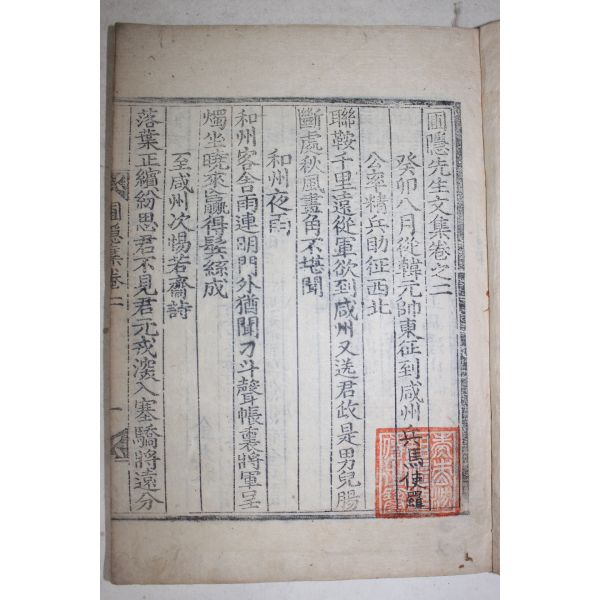 圃隱先生文集卷之二
癸卯八月從韓元帥東征到咸州兵馬使羅
公率精兵助征西北
聯鞍千里遠從軍欲到咸州又送君政是男兒腸
斷處秋風畫角不堪聞
和州夜雨
和州客舍雨連明門外猶聞刀斗聲帳裏將軍呈
燭坐曉來贏得鬂絲成
至咸州次惕若齋詩
落葉正繽紛思君不見君元戎深入塞驕將遠分
圃隱集卷二
一